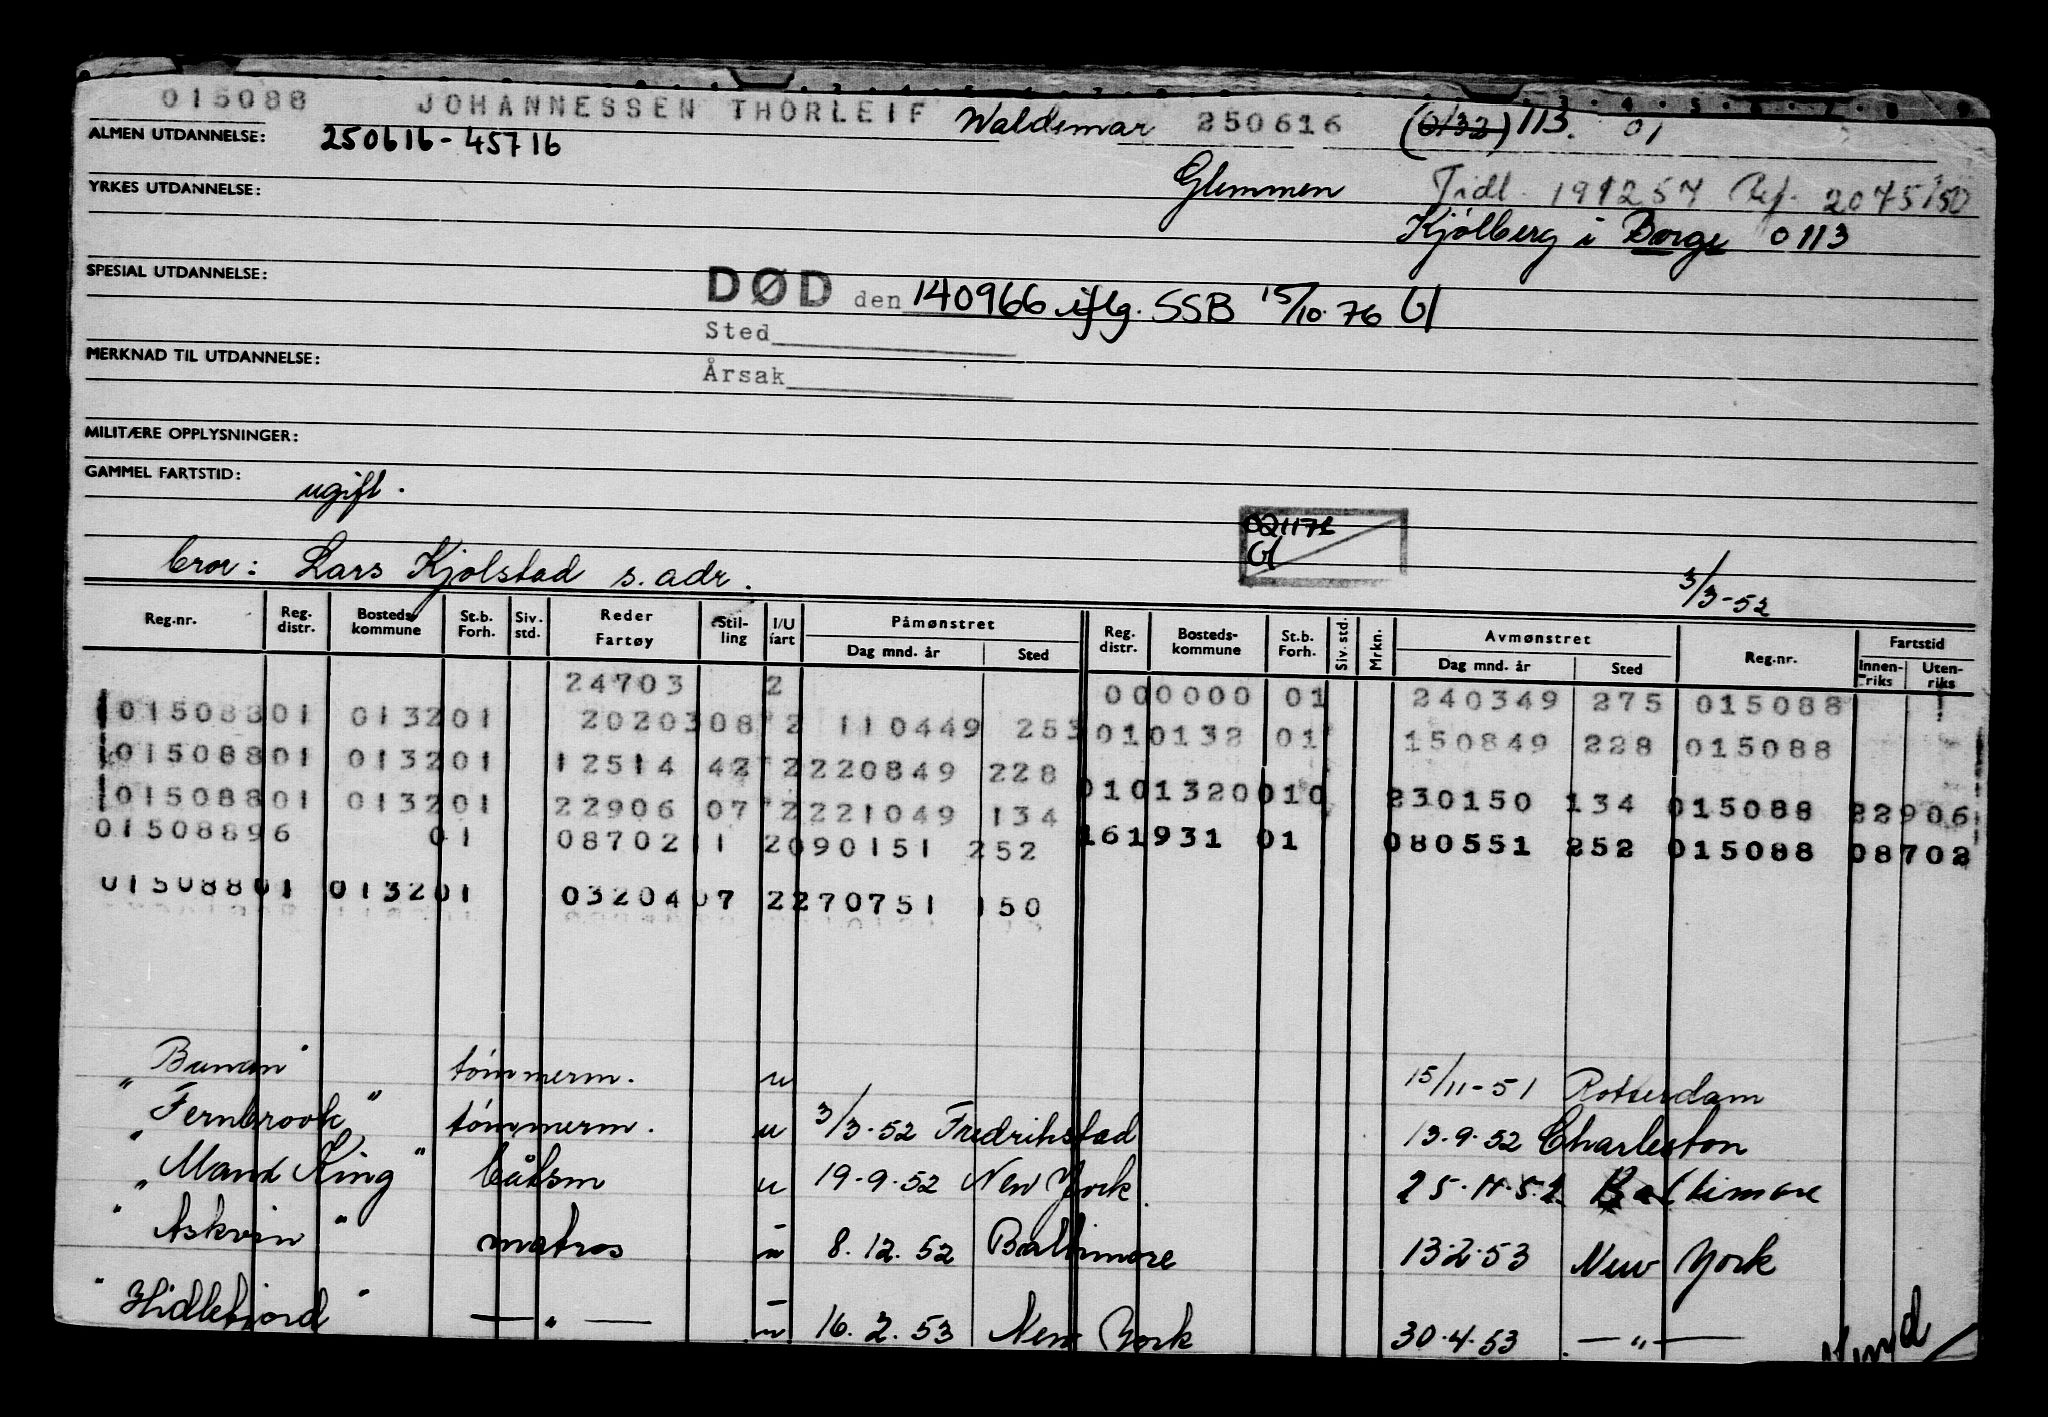 015088 JOHANNESSEN THORLEIF Waldemar 250616 (0132) 113. 01
ALMEN UTDANNELSE: 250616-45716
YRKES UTDANNELSE: Glemmen Tidl. 191257 Ref. 2075/50
Kjølberg i Borge 0113
SPESIAL UTDANNELSE:
DØD den 140966 iflg. SSB 15/10.76 Gl
Sted
MERKNAD TIL UTDANNELSE:
Årsak
MILITÆRE OPPLYSNINGER:
GAMMEL FARTSTID: ugift.
021176
Gl
bror: Lars Kjølstad s. adr.
3/3-52
Reg.nr. Reg. distr. Bosteds kommune St.b. Forh. Siv. std. Reder Fartøy Stil- ling I/U fart Påmønstret Dag mnd. år Sted Reg. distr. Bosteds- kommune St.b. Forh. Siv. std. Mrkn. Avmønstret Dag mnd. år Sted Reg.nr. Fartstid Innen- riks Uten- riks
24703 2 000000 01 240349 275 015088
01508801 013201 2020308 2 110449 253 010132 01 150849 228 015088
01508801 013201 12514 42 2220849 228
01508801 013201 22906 07 2221049 134 0101320010 230150 134 015088 22906
01508896 01 0870211 2090151 252 161931 01 080551 252 015088 08702
01508801 013201 0320407 2270751 150
"Buman" tømmerm. u 15/11-51 Rotterdam
"Fernbrook" tømmerm. u 3/3.52 Fredrikstad 13.9.52 Charleston
"Mand King" båtsm u 19.9.52 New York. 25.11.52 Baltimore
"Askvin" matros u 8.12.52 Baltimore 13.2.53 New York
"Hidlefjord" —"— u 16.2.53 New York 30.4.53 —"—